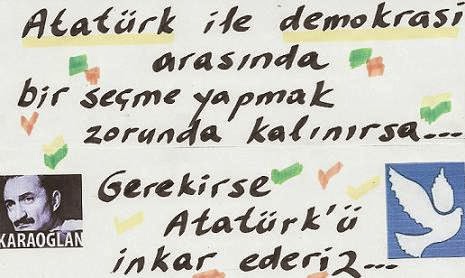 Atatürk ile demokrasi
arasında
bir seçme yapmak
zorunda kalınırsa...
Gerekirse
Atatürk'ü
inkar ederiz...
KARAOĞLAN